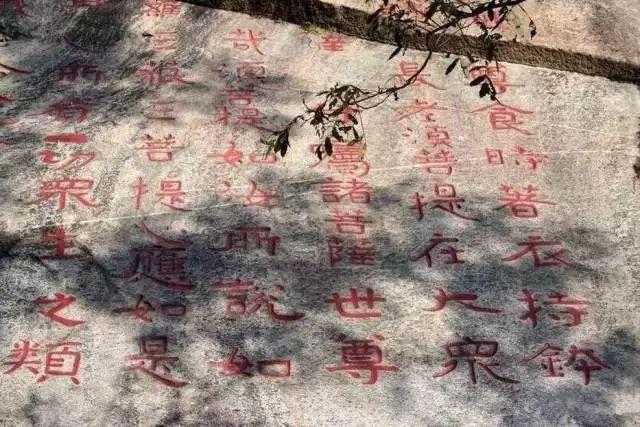 尊食時著衣持鉢
長老須菩提在大衆
囑諸菩薩世尊
哉須菩提如汝所說如
羅三藐三菩提心應如是
所有一切衆生之類